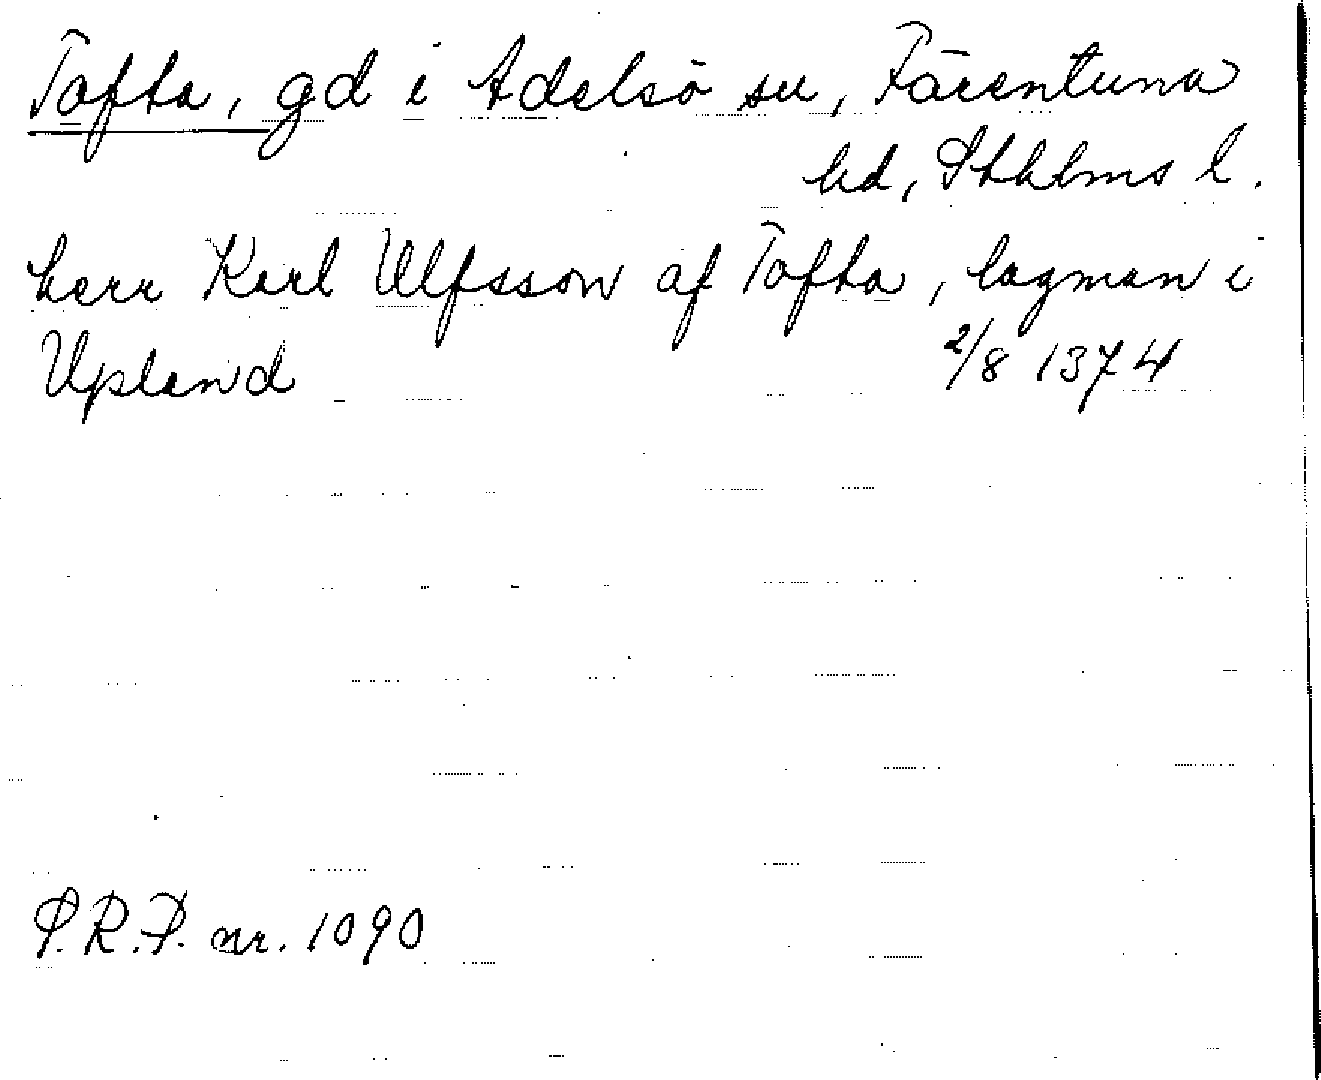 Tofta, gd i Adelsö sn, Färentuna
hd, Sthlms l.
herr Karl Ulfsson af Tofta, lagman i
Upland 2/8 1374
S.R.P. nr. 1090